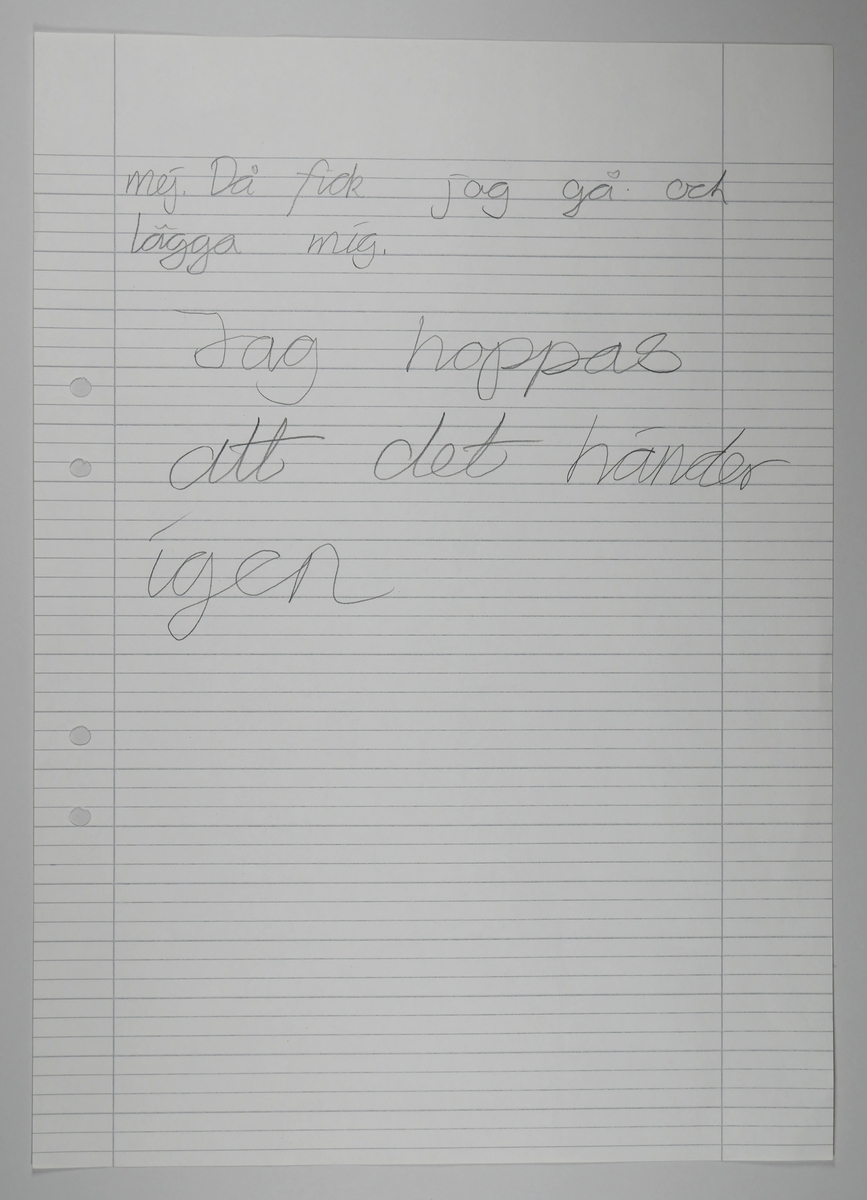 mej. Då fick jag gå och
lägga mig.
Jag hoppas
att det händer
igen